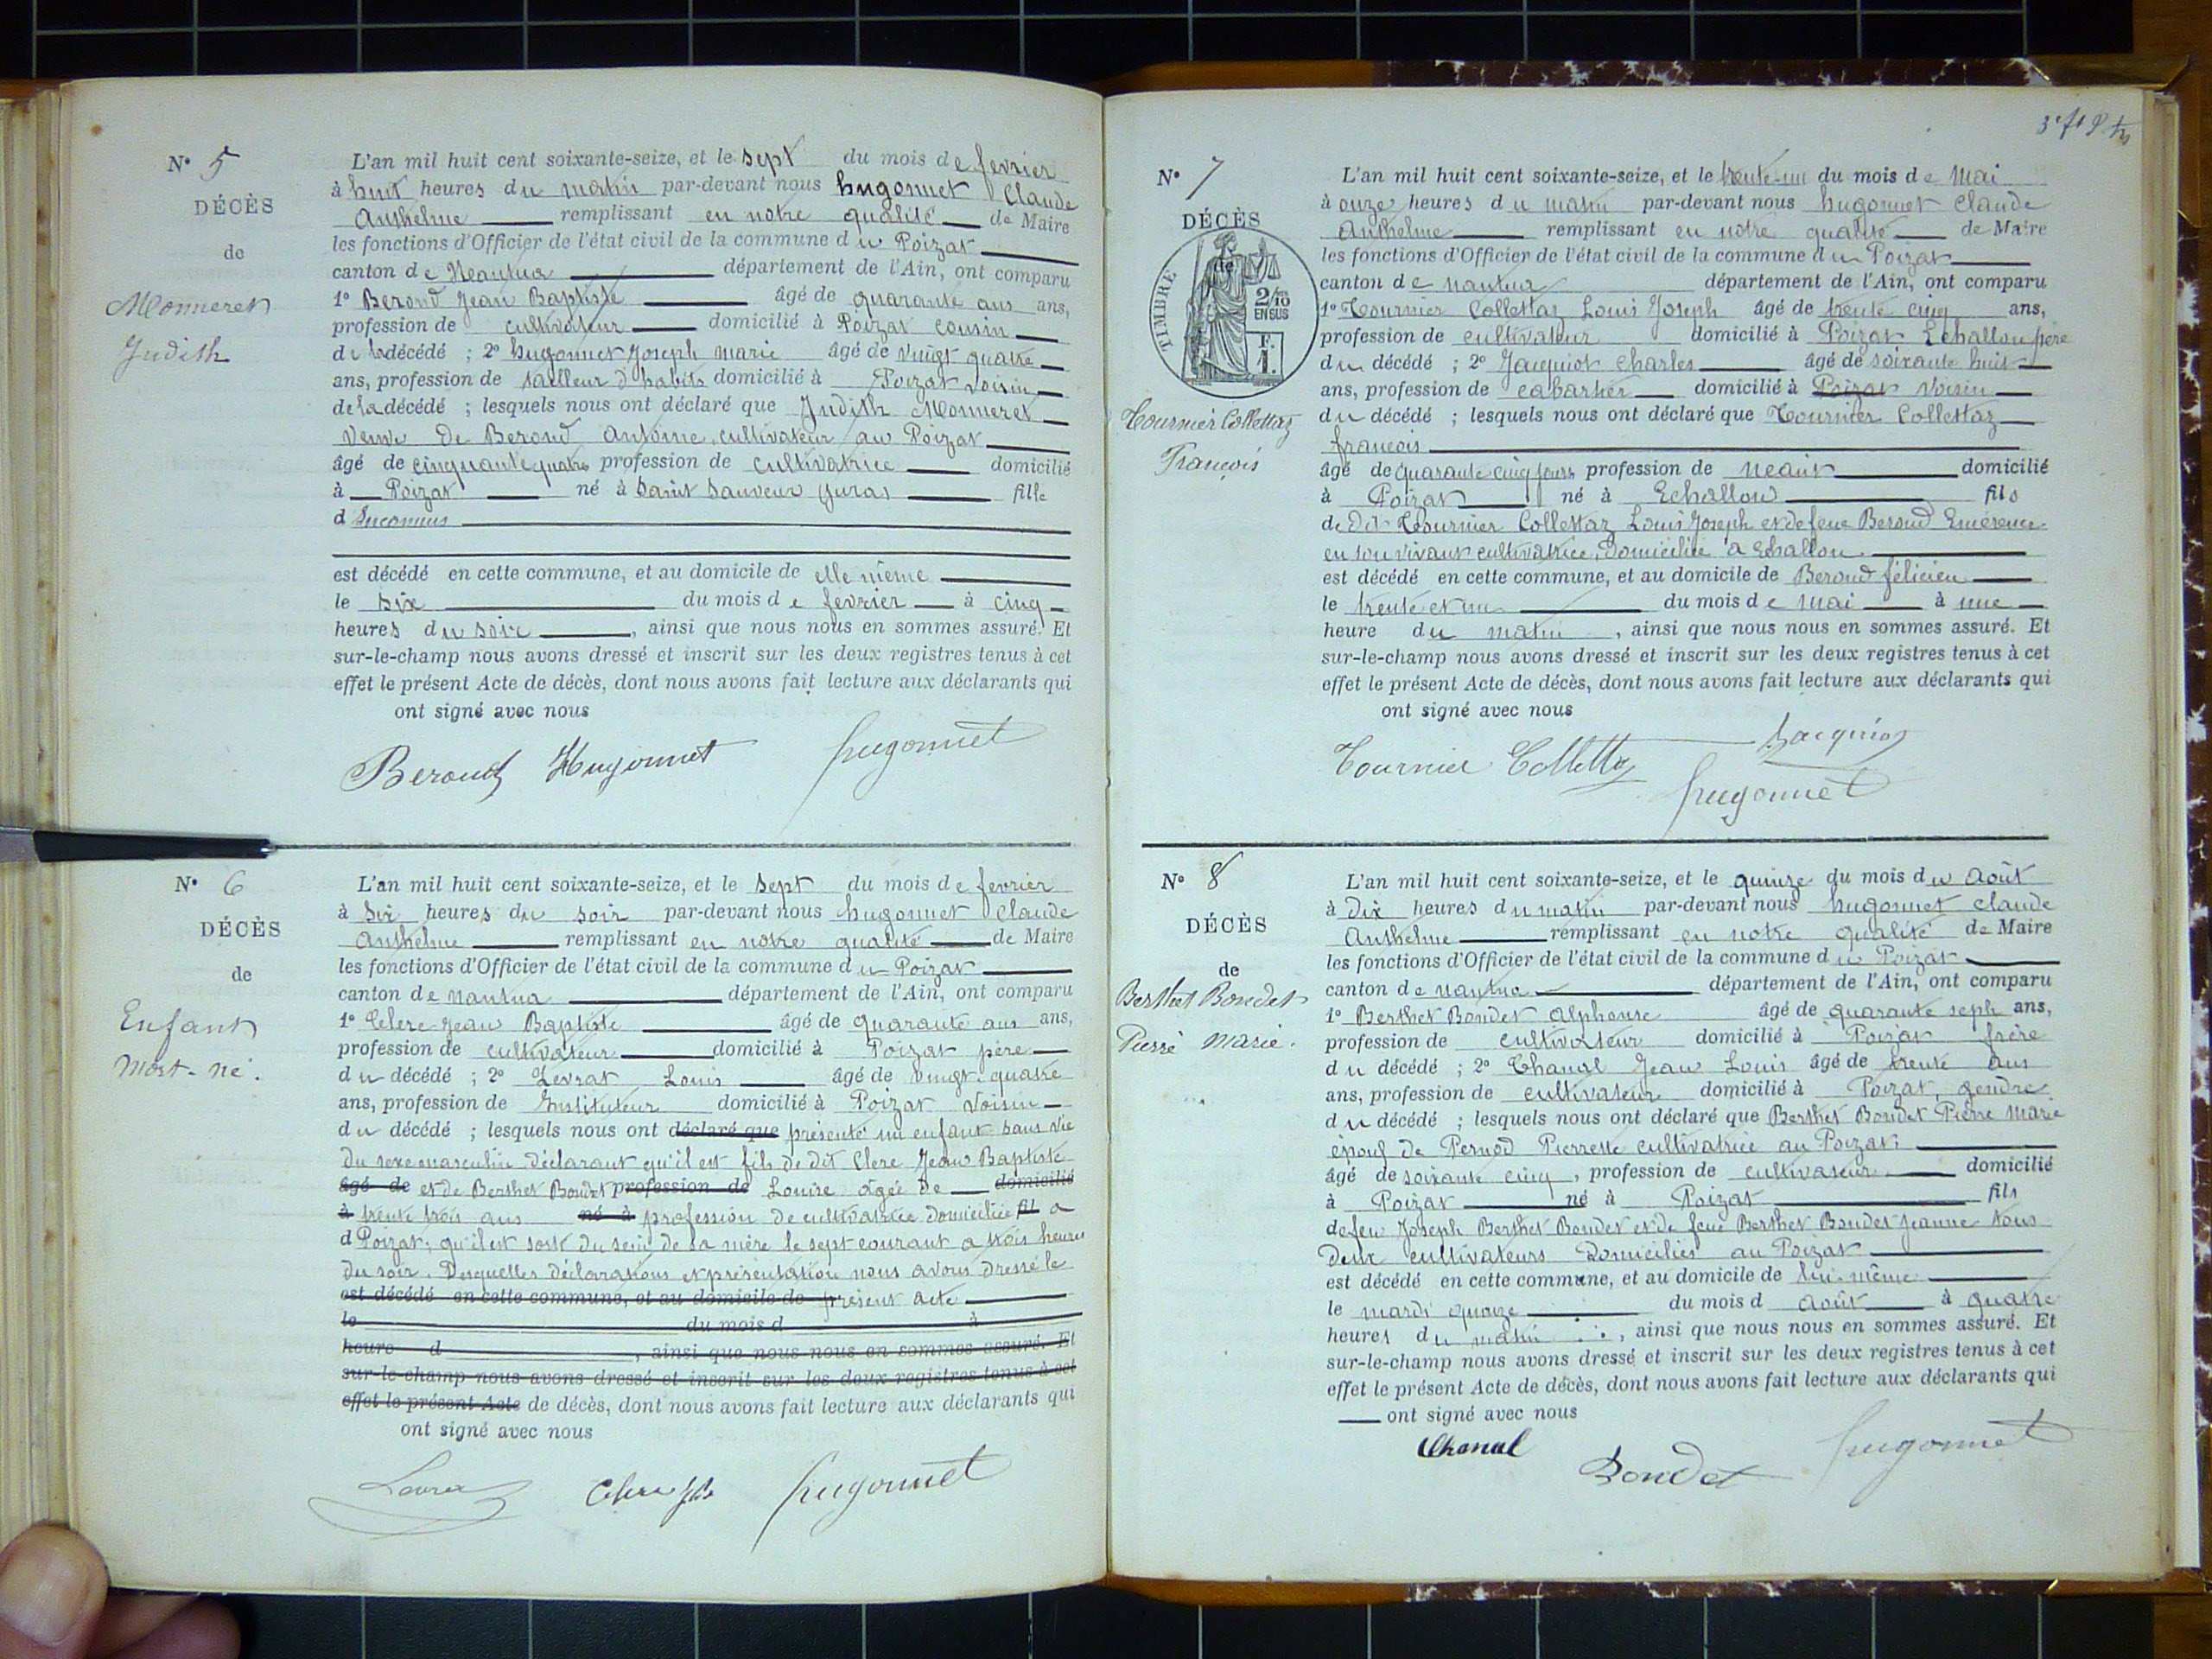 N° 5
DÉCÈS
de
Monneret
Judith
L'an mil huit cent soixante-seize, et le sept du mois de fevrier
à huit heures du matin par-devant nous hugonnet Claude
Anthelme remplissant en notre qualité de Maire
les fonctions d'Officier de l'état civil de la commune du Poizat
canton de Nantua département de l'Ain, ont comparu
1° Beroud Jean Baptiste âgé de quarante ans ans,
profession de cultivateur domicilié à Poizat cousin
de la décédé ; 2° hugonnet Joseph marie âgé de vingt quatre
ans, profession de tailleur d'habits domicilié à Poizat voisin
de la décédé ; lesquels nous ont déclaré que Judith Monneret
veuve De Beroud Antoine, cultivateur au Poizat
âgé de cinquante quatre profession de cultivatrice domicilié
à Poizat né à Saint Sauveur Juras fille
d'Inconnus
est décédé en cette commune, et au domicile de elle même
le six du mois de fevrier à cinq
heures du soir, ainsi que nous nous en sommes assuré. Et
sur-le-champ nous avons dressé et inscrit sur les deux registres tenus à cet
effet le présent Acte de décès, dont nous avons fait lecture aux déclarants qui
ont signé avec nous
Beroud Hugonnet hugonnet
N° 6
DÉCÈS
de
Enfant
Mort-né.
L'an mil huit cent soixante-seize, et le sept du mois de fevrier
à six heures du soir par-devant nous hugonnet Claude
Anthelme remplissant en notre qualité de Maire
les fonctions d'Officier de l'état civil de la commune du Poizat
canton de nantua département de l'Ain, ont comparu
1° Clerc Jean Baptiste âgé de quarante ans ans,
profession de cultivateur domicilié à Poizat père
du décédé ; 2° Levrat Louis âgé de vingt-quatre
ans, profession de Instituteur domicilié à Poizat voisin
du décédé ; lesquels nous ont déclaré que présenté un enfant sans vie
du sexe masculin déclarant qu'il est fils de dit Clerc Jean Baptiste
âgé de et de Berthet Bondet profession de Louise agée de domicilié
à trente trois ans né à profession de cultivatrice domiciliée fil a
d Poizat; qu'il est sorti du sein de sa mère le sept courant a trois heures
du soir. Desquelles déclarations et présentation nous avons dressé le
est décédé en cette commune, et au domicile de présent acte
le du mois d à
heure d , ainsi que nous nous en sommes assuré. Et
sur-le-champ nous avons dressé et inscrit sur les deux registres tenus à cet
effet le présent Acte de décès, dont nous avons fait lecture aux déclarants qui
ont signé avec nous
Levrat Clerc hugonnet
N° 7
DÉCÈS
de
TIMBRE
2/10
EN SUS
F.
1.
Tournier Collettaz
François
L'an mil huit cent soixante-seize, et le trente-un du mois de Mai
à onze heures du matin par-devant nous hugonnet Claude
Anthelme remplissant en notre qualité de Maire
les fonctions d'Officier de l'état civil de la commune du Poizat
canton de nantua département de l'Ain, ont comparu
1° Tournier Collettaz Louis Joseph âgé de trente cinq ans,
profession de cultivateur domicilié à Poizat Echallon père
du décédé ; 2° Jacquiot Charles âgé de soixante huit
ans, profession de cabartier domicilié à Poizat voisin
du décédé ; lesquels nous ont déclaré que Tournier Collettaz
françois
âgé de quarante cinq jours profession de neant domicilié
à Poizat né à Echallon fils
de dit Tournier Collettaz Louis Joseph et de feue Beroud Emérence
en son vivant cultivatrice, domiciliée a Echallon
est décédé en cette commune, et au domicile de Beroud félicien
le trente et un du mois de mai à une
heure du matin, ainsi que nous nous en sommes assuré. Et
sur-le-champ nous avons dressé et inscrit sur les deux registres tenus à cet
effet le présent Acte de décès, dont nous avons fait lecture aux déclarants qui
ont signé avec nous
Tournier Collettaz Jacquiot
hugonnet
N° 8
DÉCÈS
de
Berthet Bondet
Pierre Marie.
L'an mil huit cent soixante-seize, et le quinze du mois du Août
à dix heures du matin par-devant nous hugonnet claude
Anthelme remplissant en notre qualité de Maire
les fonctions d'Officier de l'état civil de la commune du Poizat
canton de nantua département de l'Ain, ont comparu
1° Berthet Bondet Alphonse âgé de quarante sept ans,
profession de cultivateur domicilié à Poizat frère
du décédé ; 2° Chanal Jean Louis âgé de trente ans
ans, profession de cultivateur domicilié à Poizat, gendre
du décédé ; lesquels nous ont déclaré que Berthet Bondet Pierre Marie
époux de Pernod Pierrette cultivatrice au Poizat
âgé de soixante cinq, profession de cultivateur domicilié
à Poizat né à Poizat fils
de feu Joseph Berthet Bondet et de feue Berthet Bondet Jeanne tous
deux cultivateurs domiciliés au Poizat
est décédé en cette commune, et au domicile de lui-même
le mardi quinze du mois d Août à quatre
heures du matin, ainsi que nous nous en sommes assuré. Et
sur-le-champ nous avons dressé et inscrit sur les deux registres tenus à cet
effet le présent Acte de décès, dont nous avons fait lecture aux déclarants qui
ont signé avec nous
Chanal Bondet hugonnet